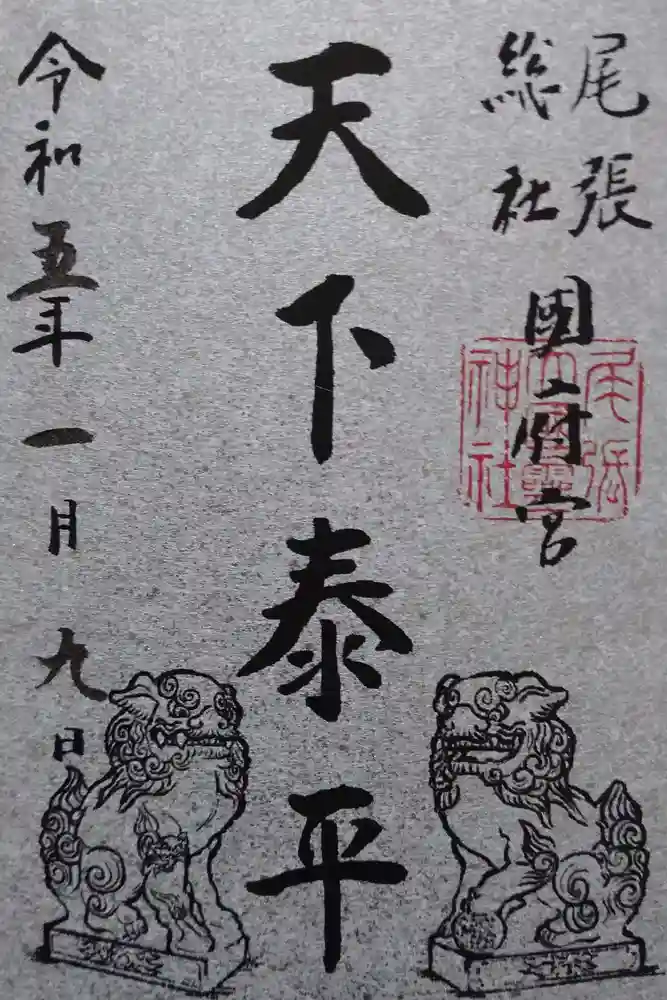 尾張
総社
國府宮
尾張
大國霊
神社
天下泰平
令和五年一月九日